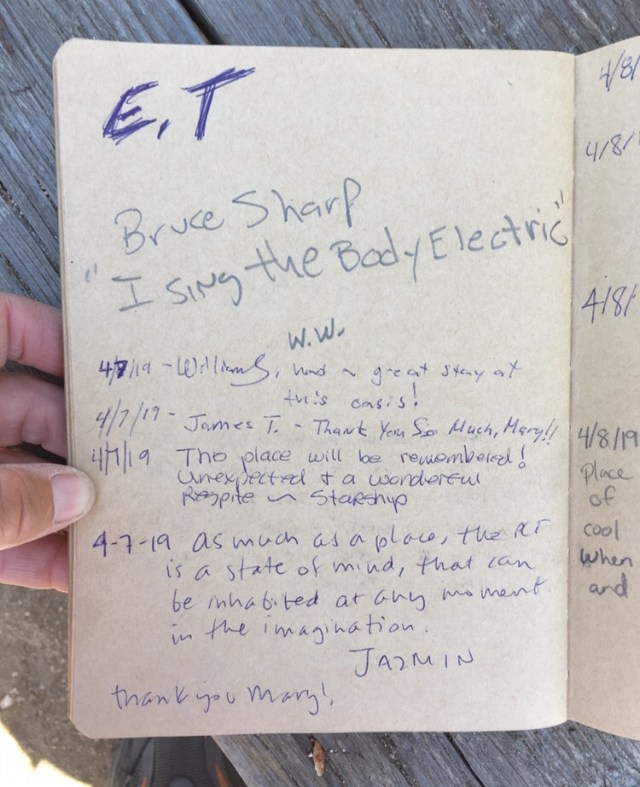 E.T
Bruce Sharp
"I sing the Body Electric"
W.W.
4/7/19 - William S, had a great stay at
this oasis!
4/7/19 - James T. - Thank You So Much, Mary!!
4/7/19 This place will be remembered!
Unexpected & a wonderful
Respite ~ Starship
4-7-19 as much as a place, the PCT
is a state of mind, that can
be inhabited at any moment
in the imagination.
JAZMIN
thank you Mary!,
4/8/
4/8/
4/8/
4/8/19
Place
of
cool
when
and